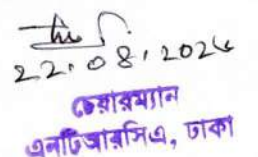 22.08.202৫
চেয়ারম্যান
এনটিআরসিএ, ঢাকা